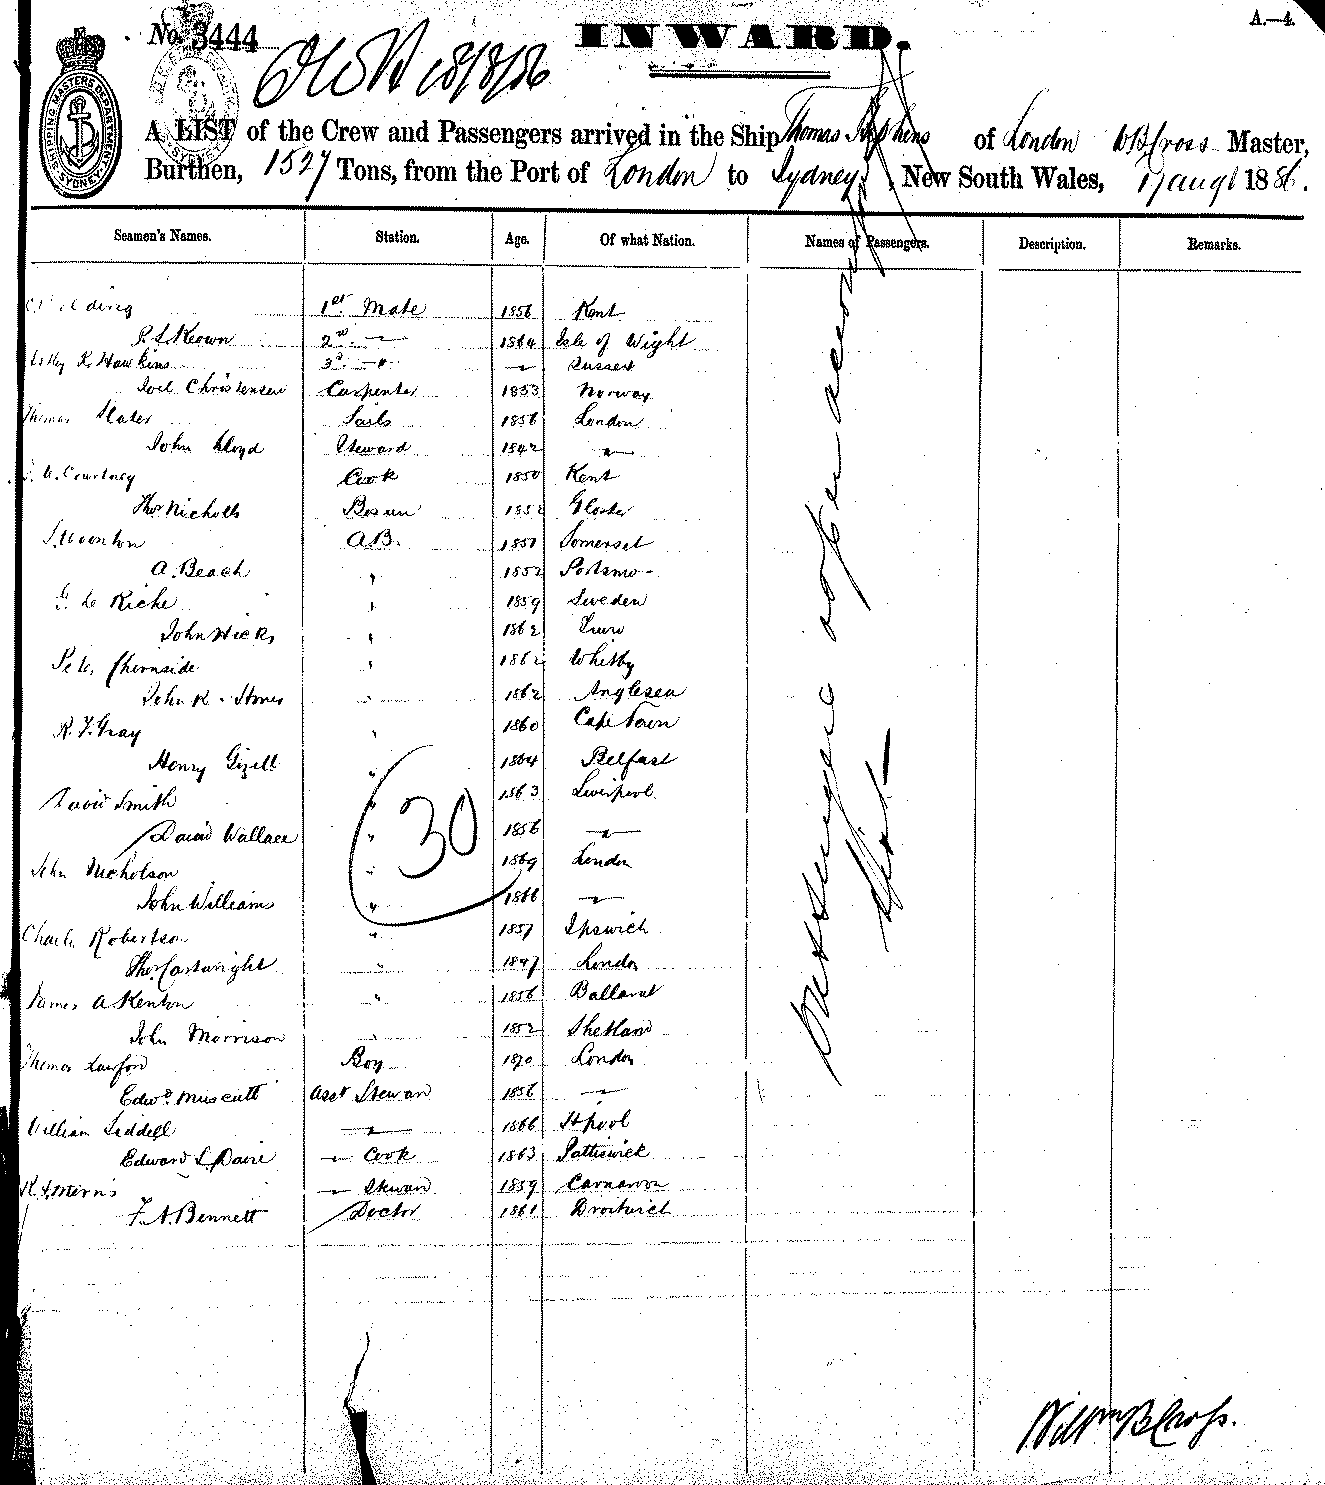 A.—4.
No. 3444
INWARD.
18/8/86
SHIPPING MASTERS DEPARTMENT SYDNEY
A LIST of the Crew and Passengers arrived in the Ship Thomas Stephens of London W B Cross Master,
Burthen, 1527 Tons, from the Port of London to Sydney, New South Wales, 17 augt 1886.
Seamen's Names. Station. Age. Of what Nation. Names of Passengers. Description. Remarks.
1st Mate 1856 Kent
2nd 1864 Isle of Wight
Hawkins 3d Sussex
Joel Christensen Carpenter 1853 Norway
Thomas Slater Sails 1856 London
John Lloyd Steward 1842 "
Courtney Cook 1850 Kent
Thos Nicholls Bosun 1852 Gloster
A.B. 1851 Somerset
A. Beach " 1852 Portsmo-
G. Le Riche " 1859 Sweden
John Hicks " 1862 Truro
Peter Chernside " 1862 Whitby
John R. Jones " 1862 Anglesea
R. F. Gray " 1860 Cape Town
Henry Gizell " 1864 Belfast
David Smith " 1863 Liverpool
David Wallace " 1856 "
John Nicholson " 1869 London
John William " 1866 "
Charles Robertson " 1857 Ipswich
Thos Cartwright " 1847 London
James A Kenton " 1856 Ballarat
John Morrison " 1852 Shetland
Thomas Lawford Boy 1870 London
Edwd Muscutt asst Stewar 1856 "
William Liddell " 1866 H pool
Edward L. Daire " Cook 1863 Pattiswick
" Stewar 1859 Carnarvon
F. A. Bennett Doctor 1861 Droitwich
30
Passengers as per accompg
list
Willm B Cross.